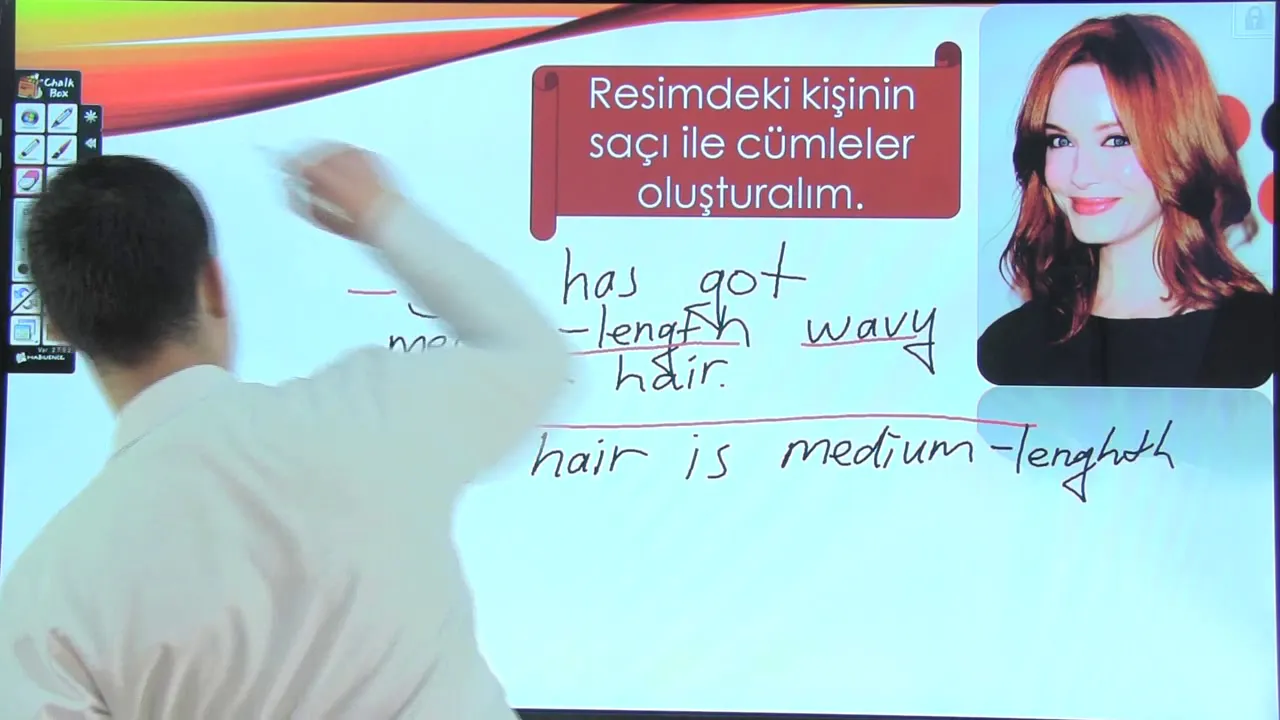 Chalk
Box
Resimdeki kişinin
saçı ile cümleler
oluşturalım.
has got
-length wavy
hair.
hair is medium-lenghth